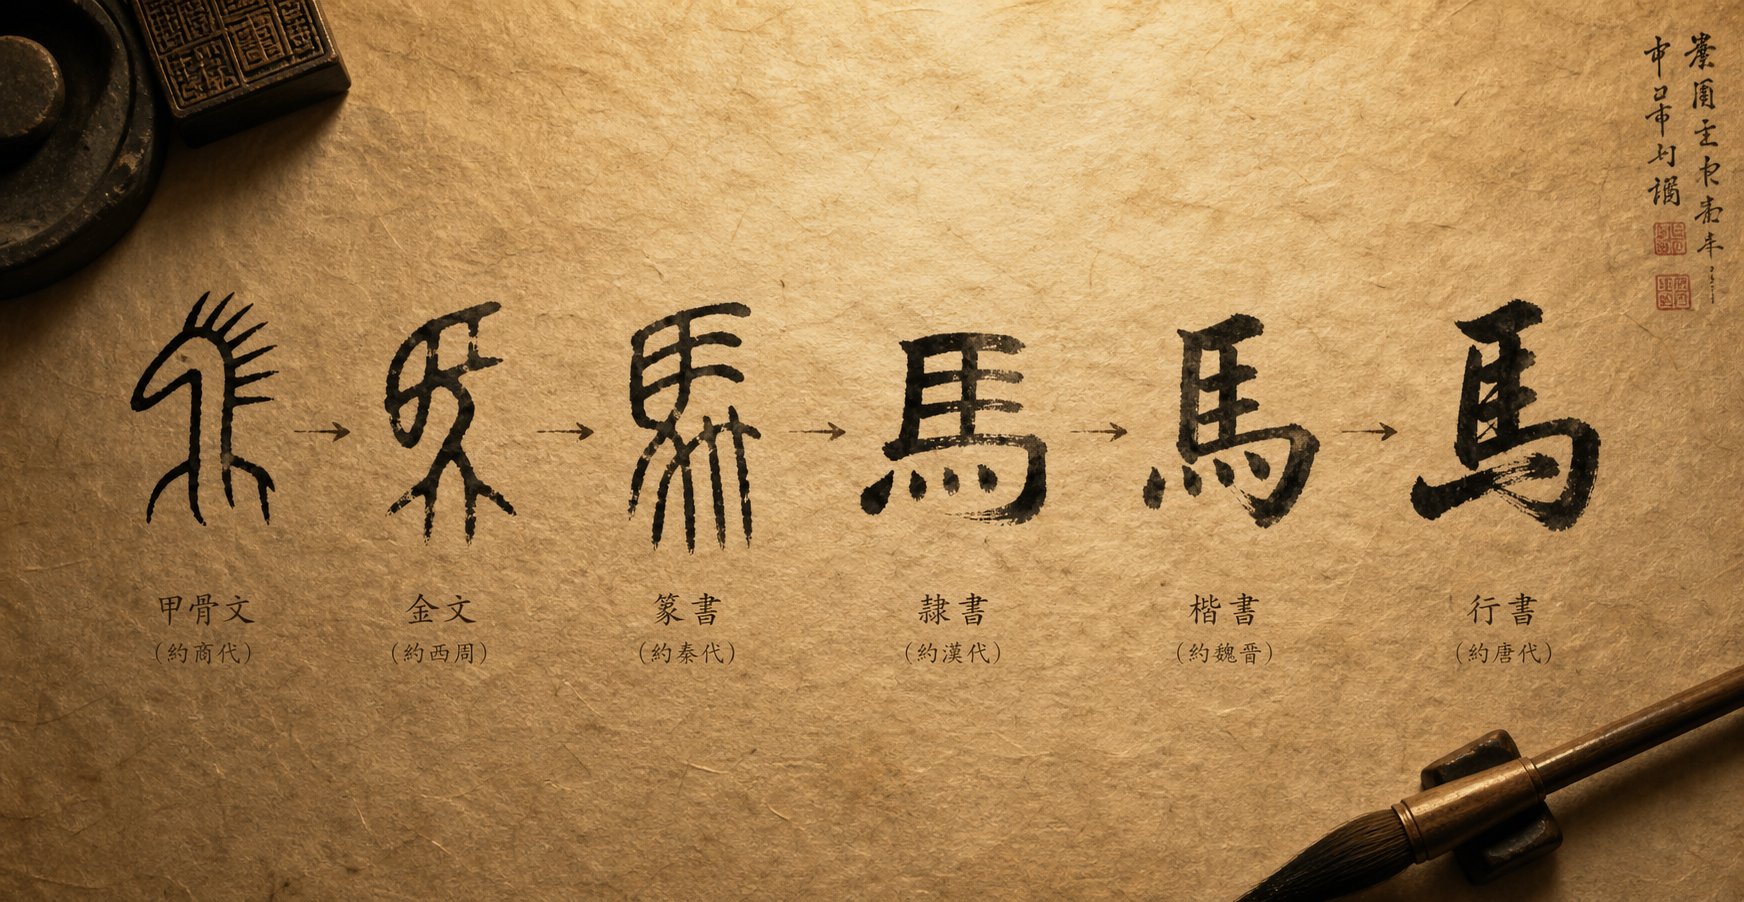 馬 → 馬 → 馬 → 馬 → 馬 → 馬
甲骨文 金文 篆書 隸書 楷書 行書
(約商代) (約西周) (約秦代) (約漢代) (約魏晉) (約唐代)